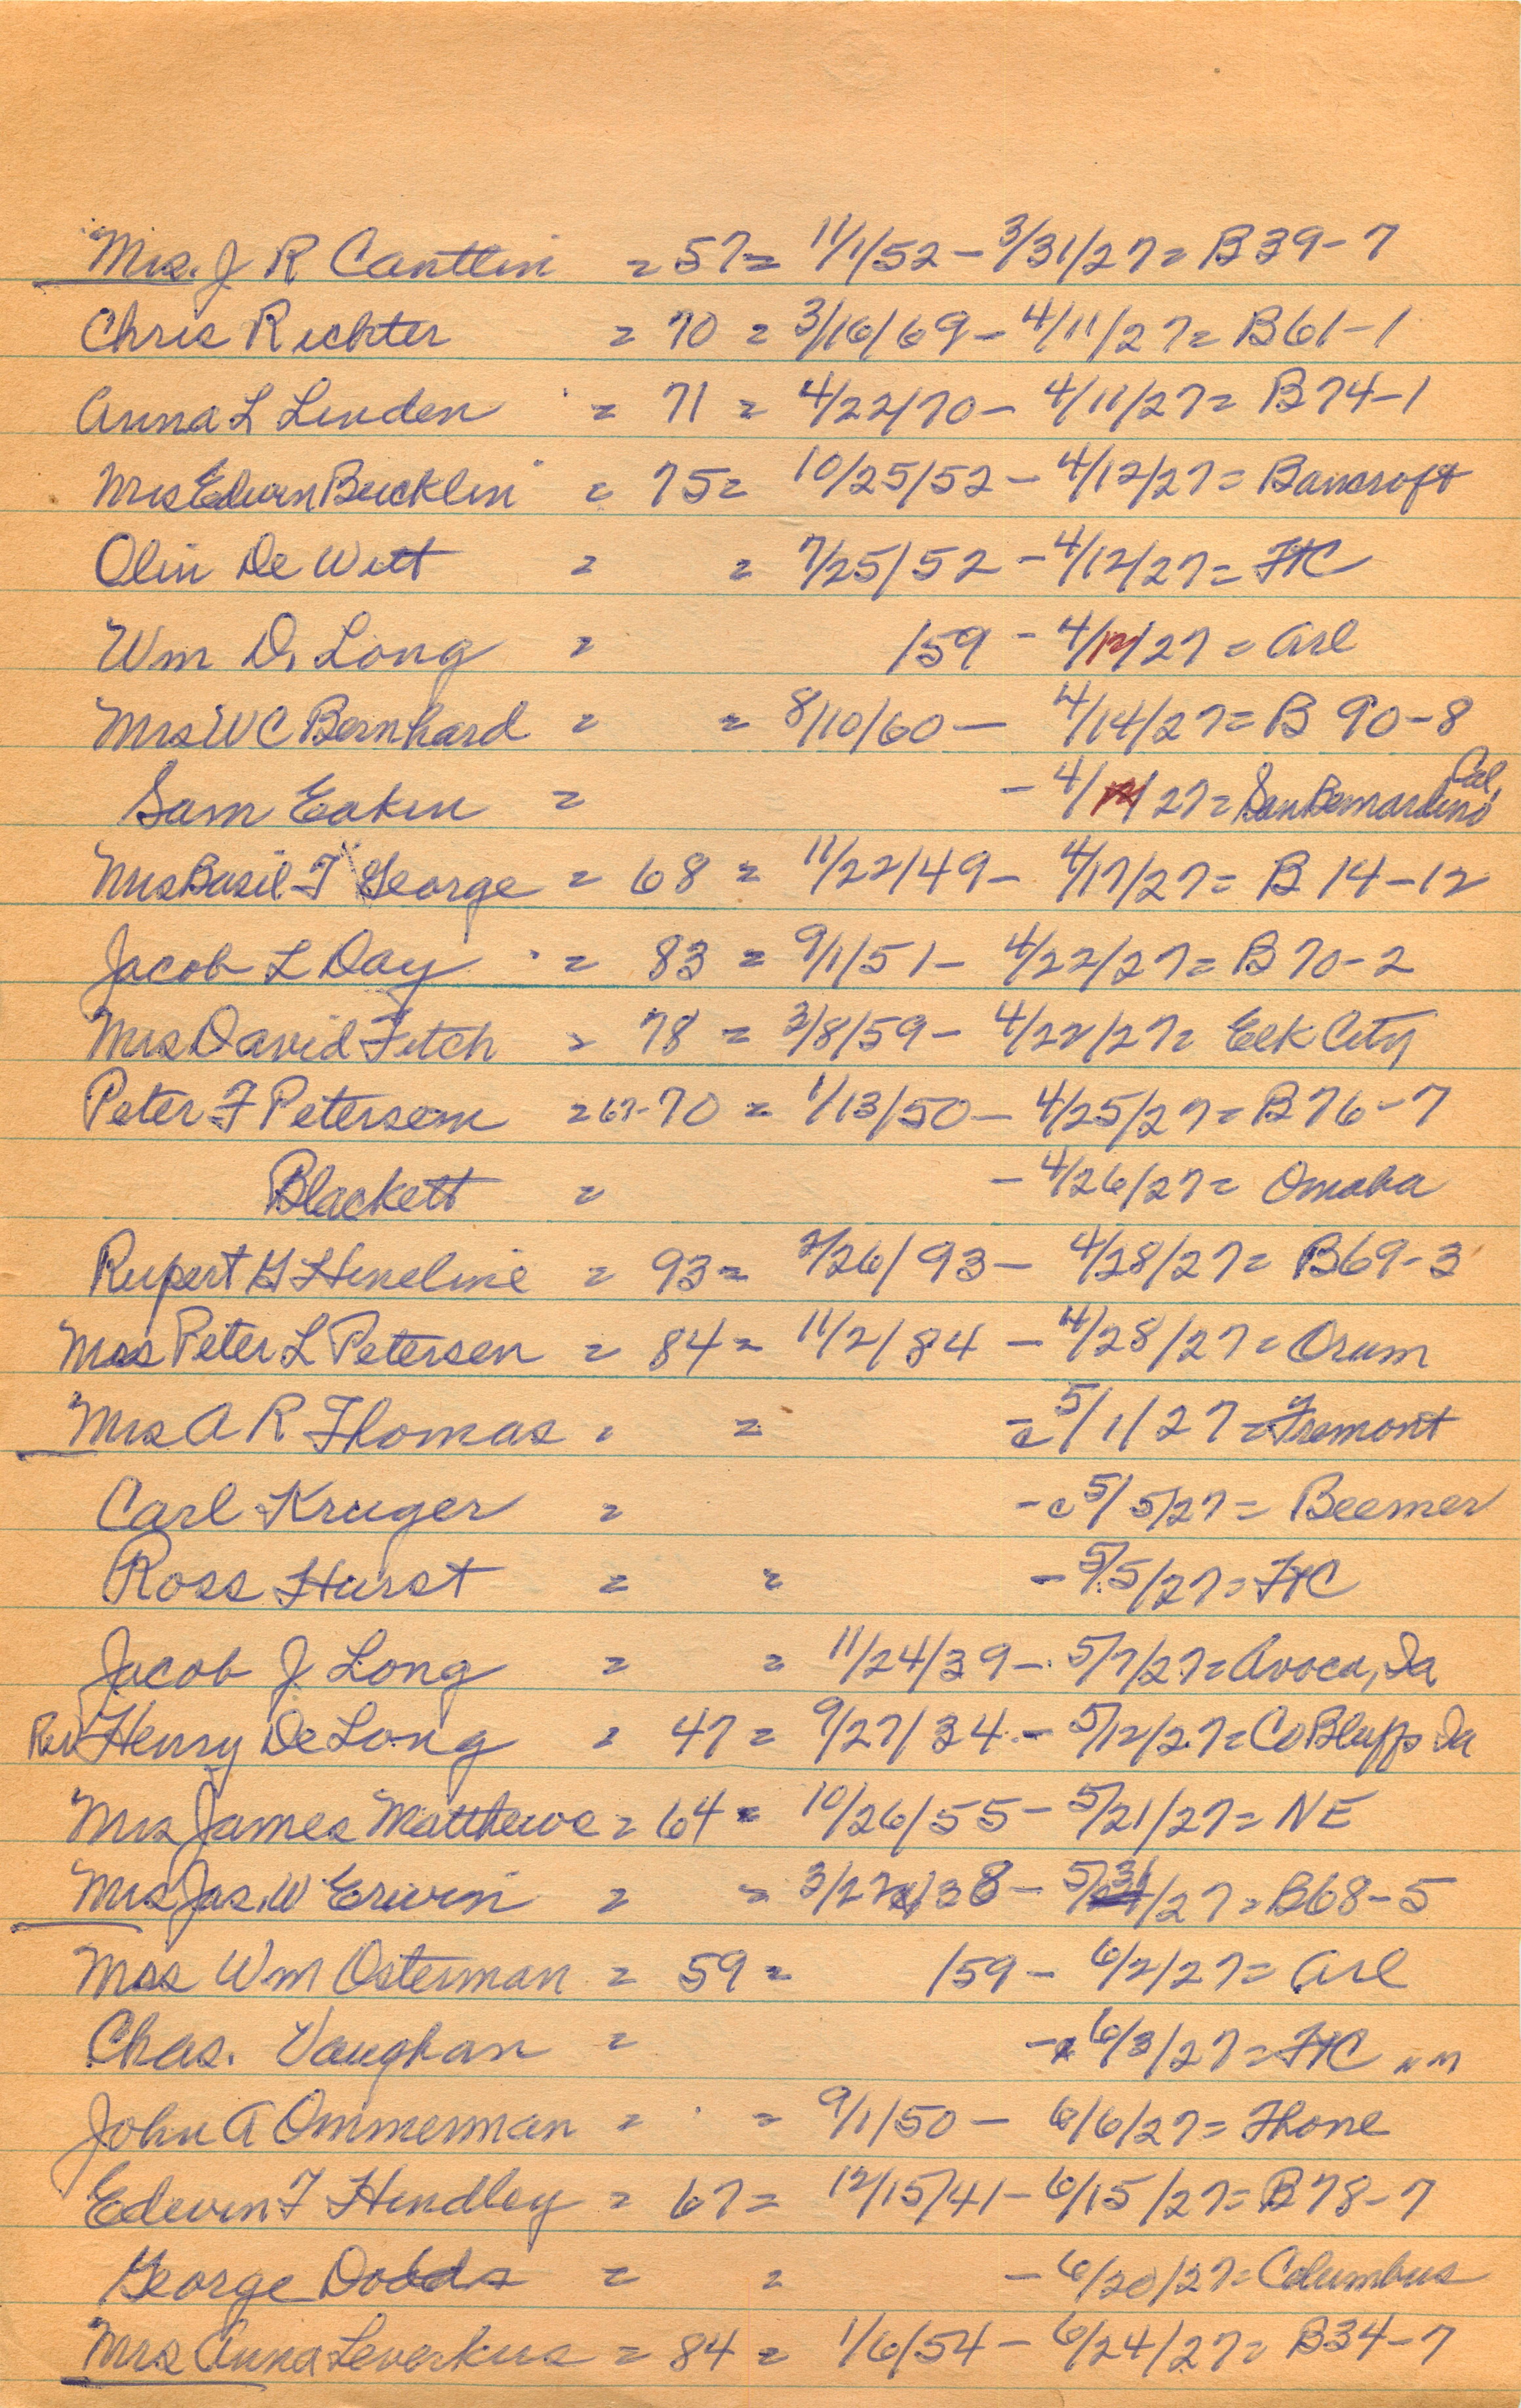 Mrs. J R Cantlin = 57 = 11/1/52 - 3/31/27 = B39-7
Chris Richter = 70 = 3/16/69 - 4/11/27 = B61-1
Anna L Linden = 71 = 4/22/70 - 4/11/27 = B74-1
Mrs Edwin Bucklin = 75 = 10/25/52 - 4/12/27 = Bancroft
Olin De Witt = = 7/25/52 - 4/12/27 = FtC
Wm D. Long = /59 - 4/12/27 = Arl
Mrs W C Bernhard = = 8/10/60 - 4/14/27 = B 90-8
Sam Eakin = - 4/12/27 = San Bernardino Cal.
Mrs Basil F George = 68 = 11/22/49 - 4/17/27 = B 14-12
Jacob L Day = 83 = 9/1/51 - 4/22/27 = B70-2
Mrs David Fitch = 78 = 3/8/59 - 4/22/27 = Elk City
Peter F Petersen = 67-70 = 1/13/50 - 4/25/27 = B76-7
Blackett = - 4/26/27 = Omaha
Rupert G Hineline = 93 = 2/26/93 - 4/28/27 = B69-3
Mrs Peter L Petersen = 84 = 11/2/84 - 4/28/27 = Orum
Mrs A R Thomas = = - c 5/1/27 = Fremont
Carl Kruger = - c 5/5/27 = Beemer
Ross Hurst = = - 5/5/27 = FtC
Jacob J Long = = 11/24/39 - 5/7/27 = Avoca, Ia
Rev Henry De Long = 47 = 9/27/34 - 5/12/27 = Co Bluffs Ia
Mrs James Matthews = 64 = 10/26/55 - 5/21/27 = NE
Mrs Jas. W Erwin = = 3/27/38 - 5/31/27 = B68-5
Mrs Wm Osterman = 59 = /59 - 6/2/27 = Arl
Chas. Vaughan = - 6/3/27 = FtC
John A Ommerman = = 9/1/50 - 6/6/27 = Thone
Edwin F Hindley = 67 = 12/15/41 - 6/15/27 = B78-7
George Dodds = = - 6/20/27 = Columbus
Mrs Anna Leverkus = 84 = 1/6/54 - 6/24/27 = B34-7